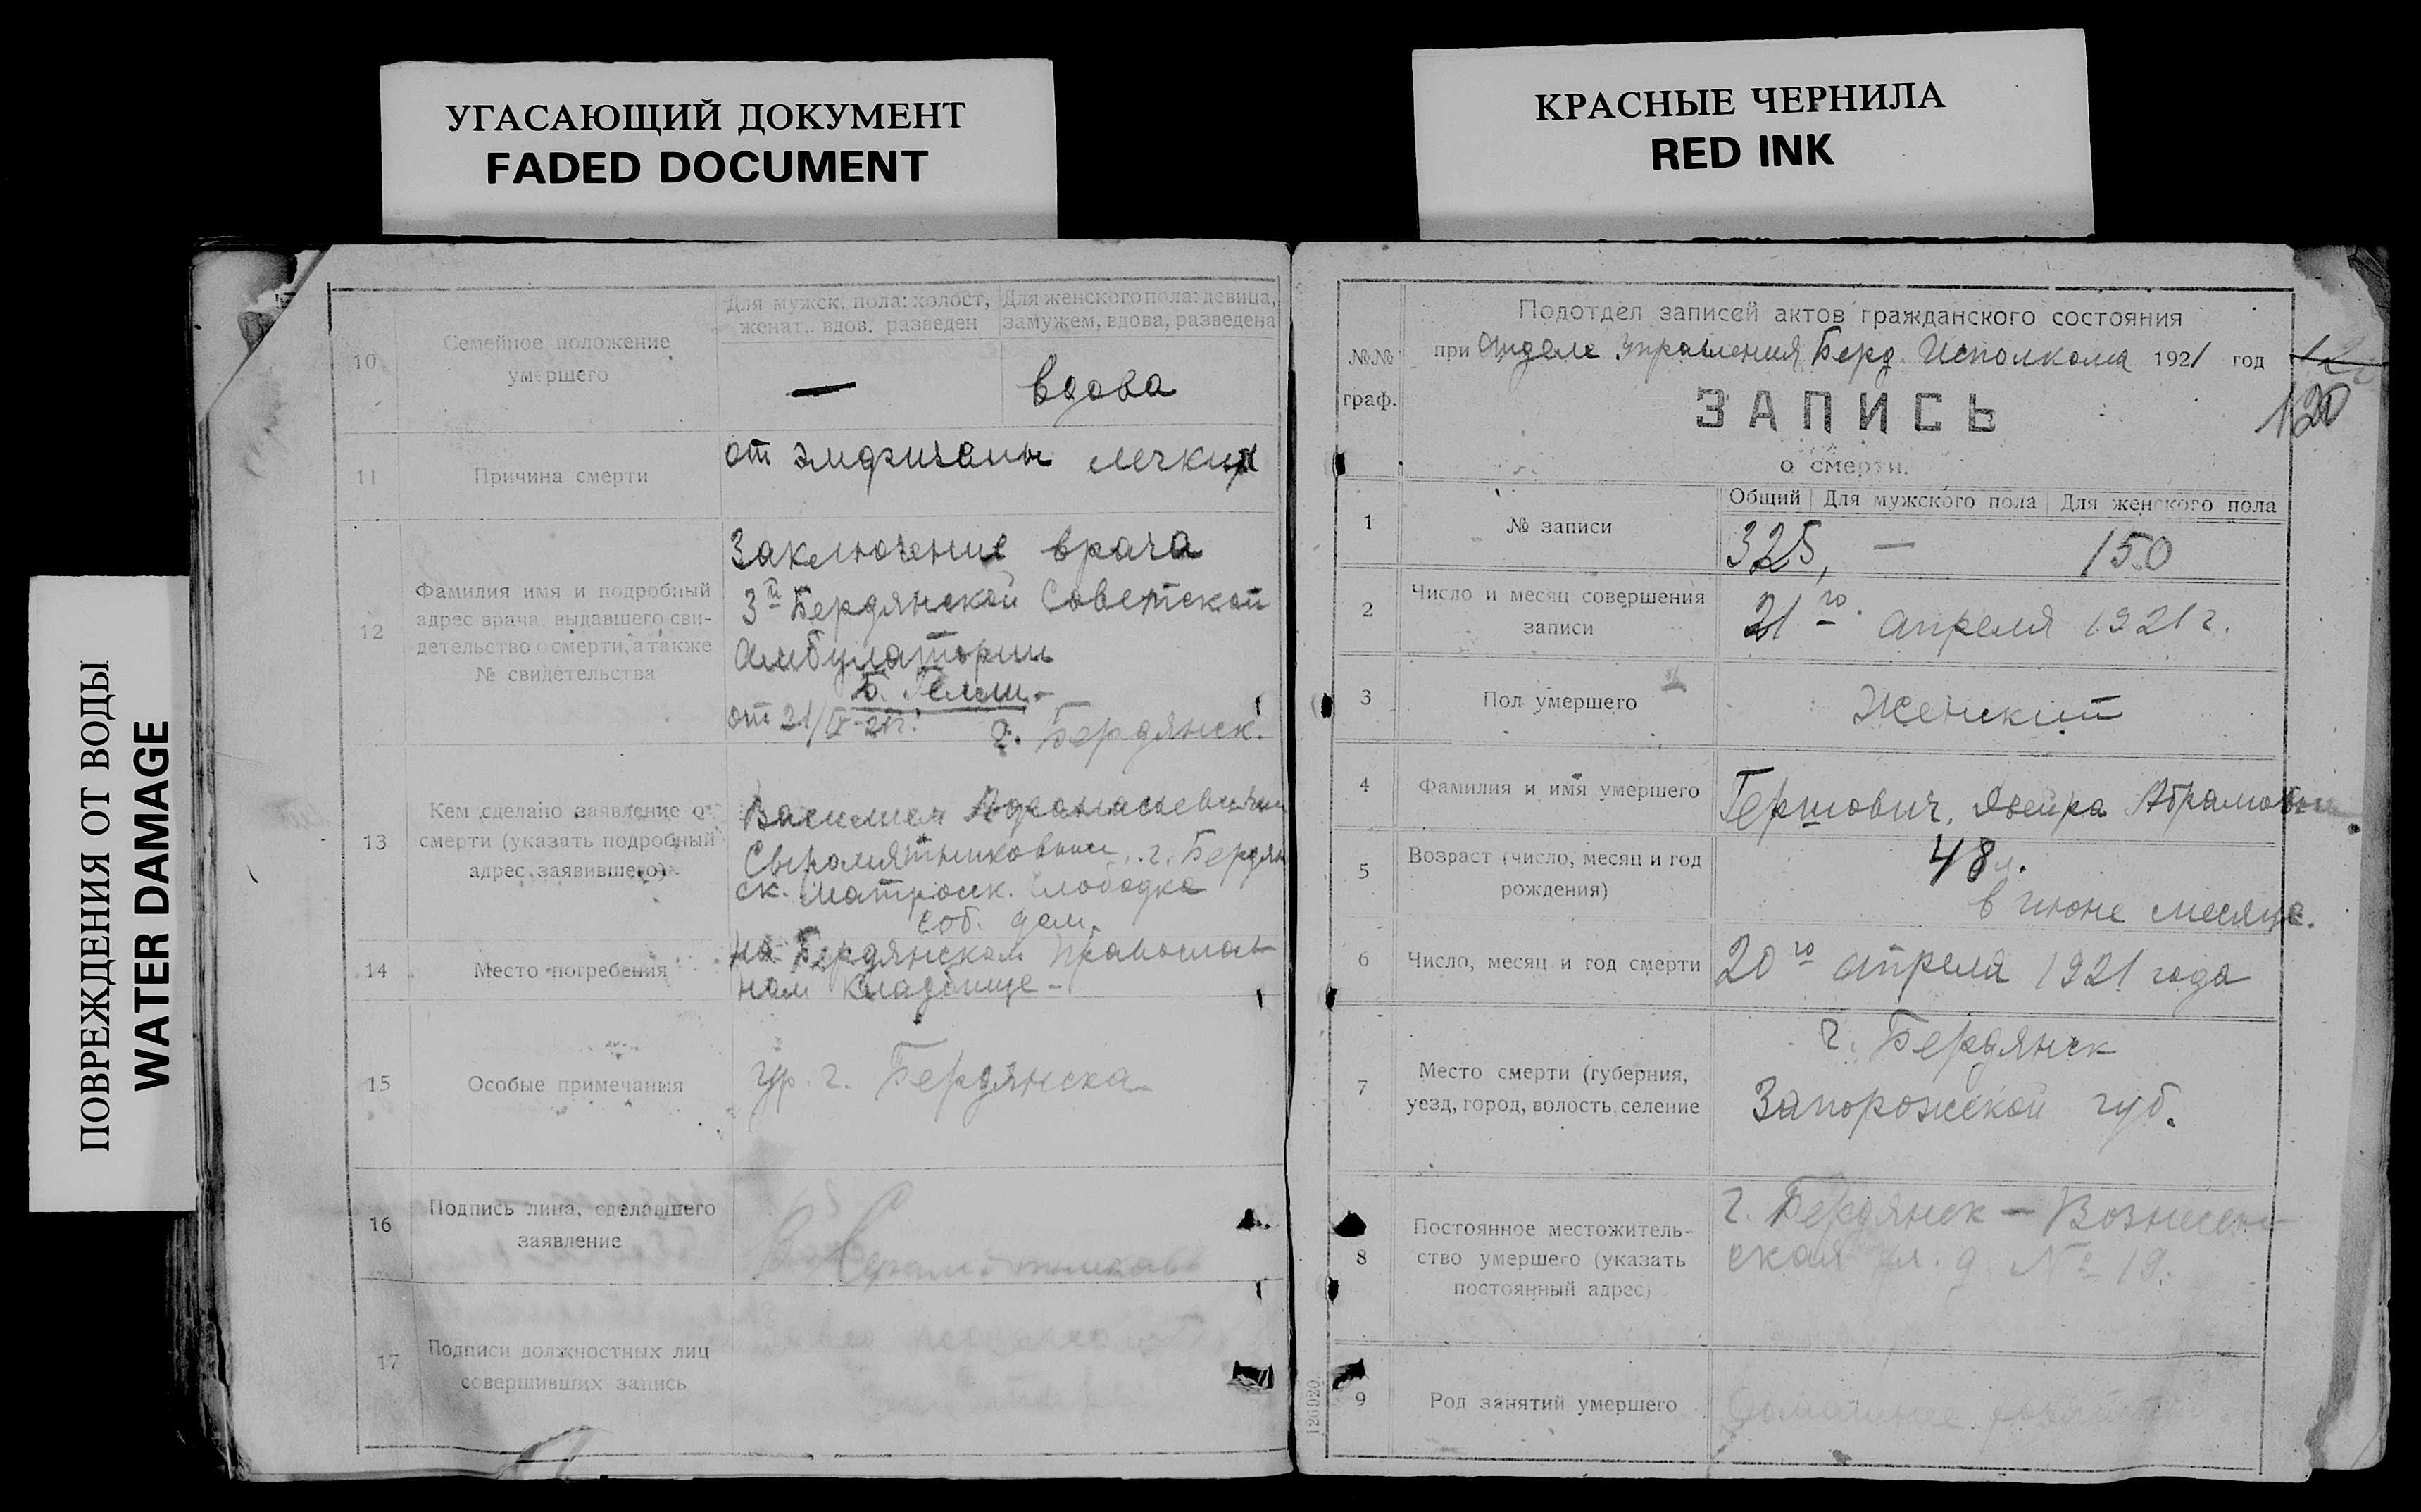 УГАСАЮЩИЙ ДОКУМЕНТ
FADED DOCUMENT
КРАСНЫЕ ЧЕРНИЛА
RED INK
ПОВРЕЖДЕНИЯ ОТ ВОДЫ
WATER DAMAGE
10
Семейное положение
умершего
Для мужск. пола: холост,
женат., вдов. разведен
Для женского пола: девица,
замужем, вдова, разведена
—
вдова
11
Причина смерти
от эмфизепы легких
12
Фамилия имя и подробный
адрес врача, выдавшего сви-
детельство о смерти, а также
№ свидетельства
Заключение врача
3й Бердянской Советской
Амбулатории
от 21/IV-21г.
г. Бердянск.
13
Кем сделано заявление о
смерти (указать подробный
адрес заявившего)
Василием Афанасьевичем
Сыромятниковым, г. Бердян
ск. Матросск. слободка
соб. дом.
14
Место погребения
на Бердянском православ
ном кладбище-
15
Особые примечания
гр. г. Бердянска
16
Подпись лица, сделавшего
заявление
17
Подписи должностных лиц
совершивших запись
№№
граф.
Подотдел записей актов гражданского состояния
при Отделе Управления Берд. Исполкома 1921 год
120
ЗАПИСЬ
о смерти.
1
№ записи
Общий Для мужского пола Для женского пола
325, — 150
2
Число и месяц совершения
записи
21го апреля 1921 г.
3
Пол умершего
Женский
4
Фамилия и имя умершего
Гершович, Двейра Абрамовна
5
Возраст (число, месяц и год
рождения)
48 л.
в июне месяце.
6
Число, месяц и год смерти
20го апреля 1921 года
7
Место смерти (губерния,
уезд, город, волость, селение
г. Бердянск
Запорожской губ.
8
Постоянное местожитель-
ство умершего (указать
постоянный адрес)
г. Бердянск — Вознесен-
ская ул. д. № 19.
9
Род занятий умершего
Домашнее
126920